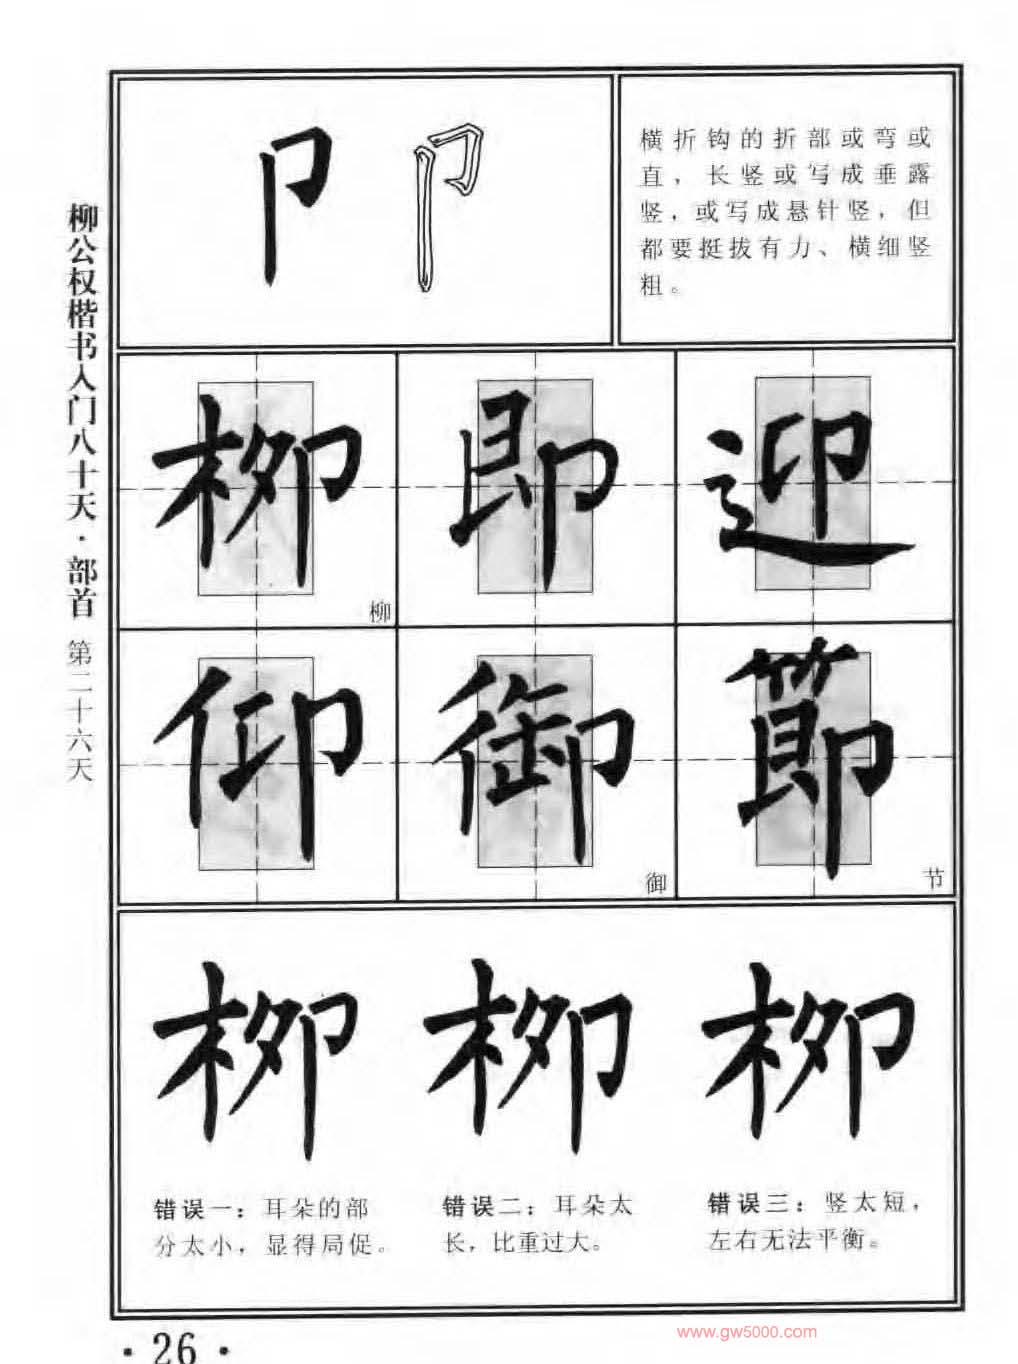 柳公权楷书入门八十天·部首 第二十六天
卩 卩
横折钩的折部或弯或
直，长竖或写成垂露
竖，或写成悬针竖，但
都要挺拔有力、横细竖
粗。
柳 即 迎
柳
仰 御 節
御 节
柳 柳 柳
错误一：耳朵的部
分太小，显得局促。
错误二：耳朵太
长，比重过大。
错误三：竖太短，
左右无法平衡。
·26·
www.gw5000.com